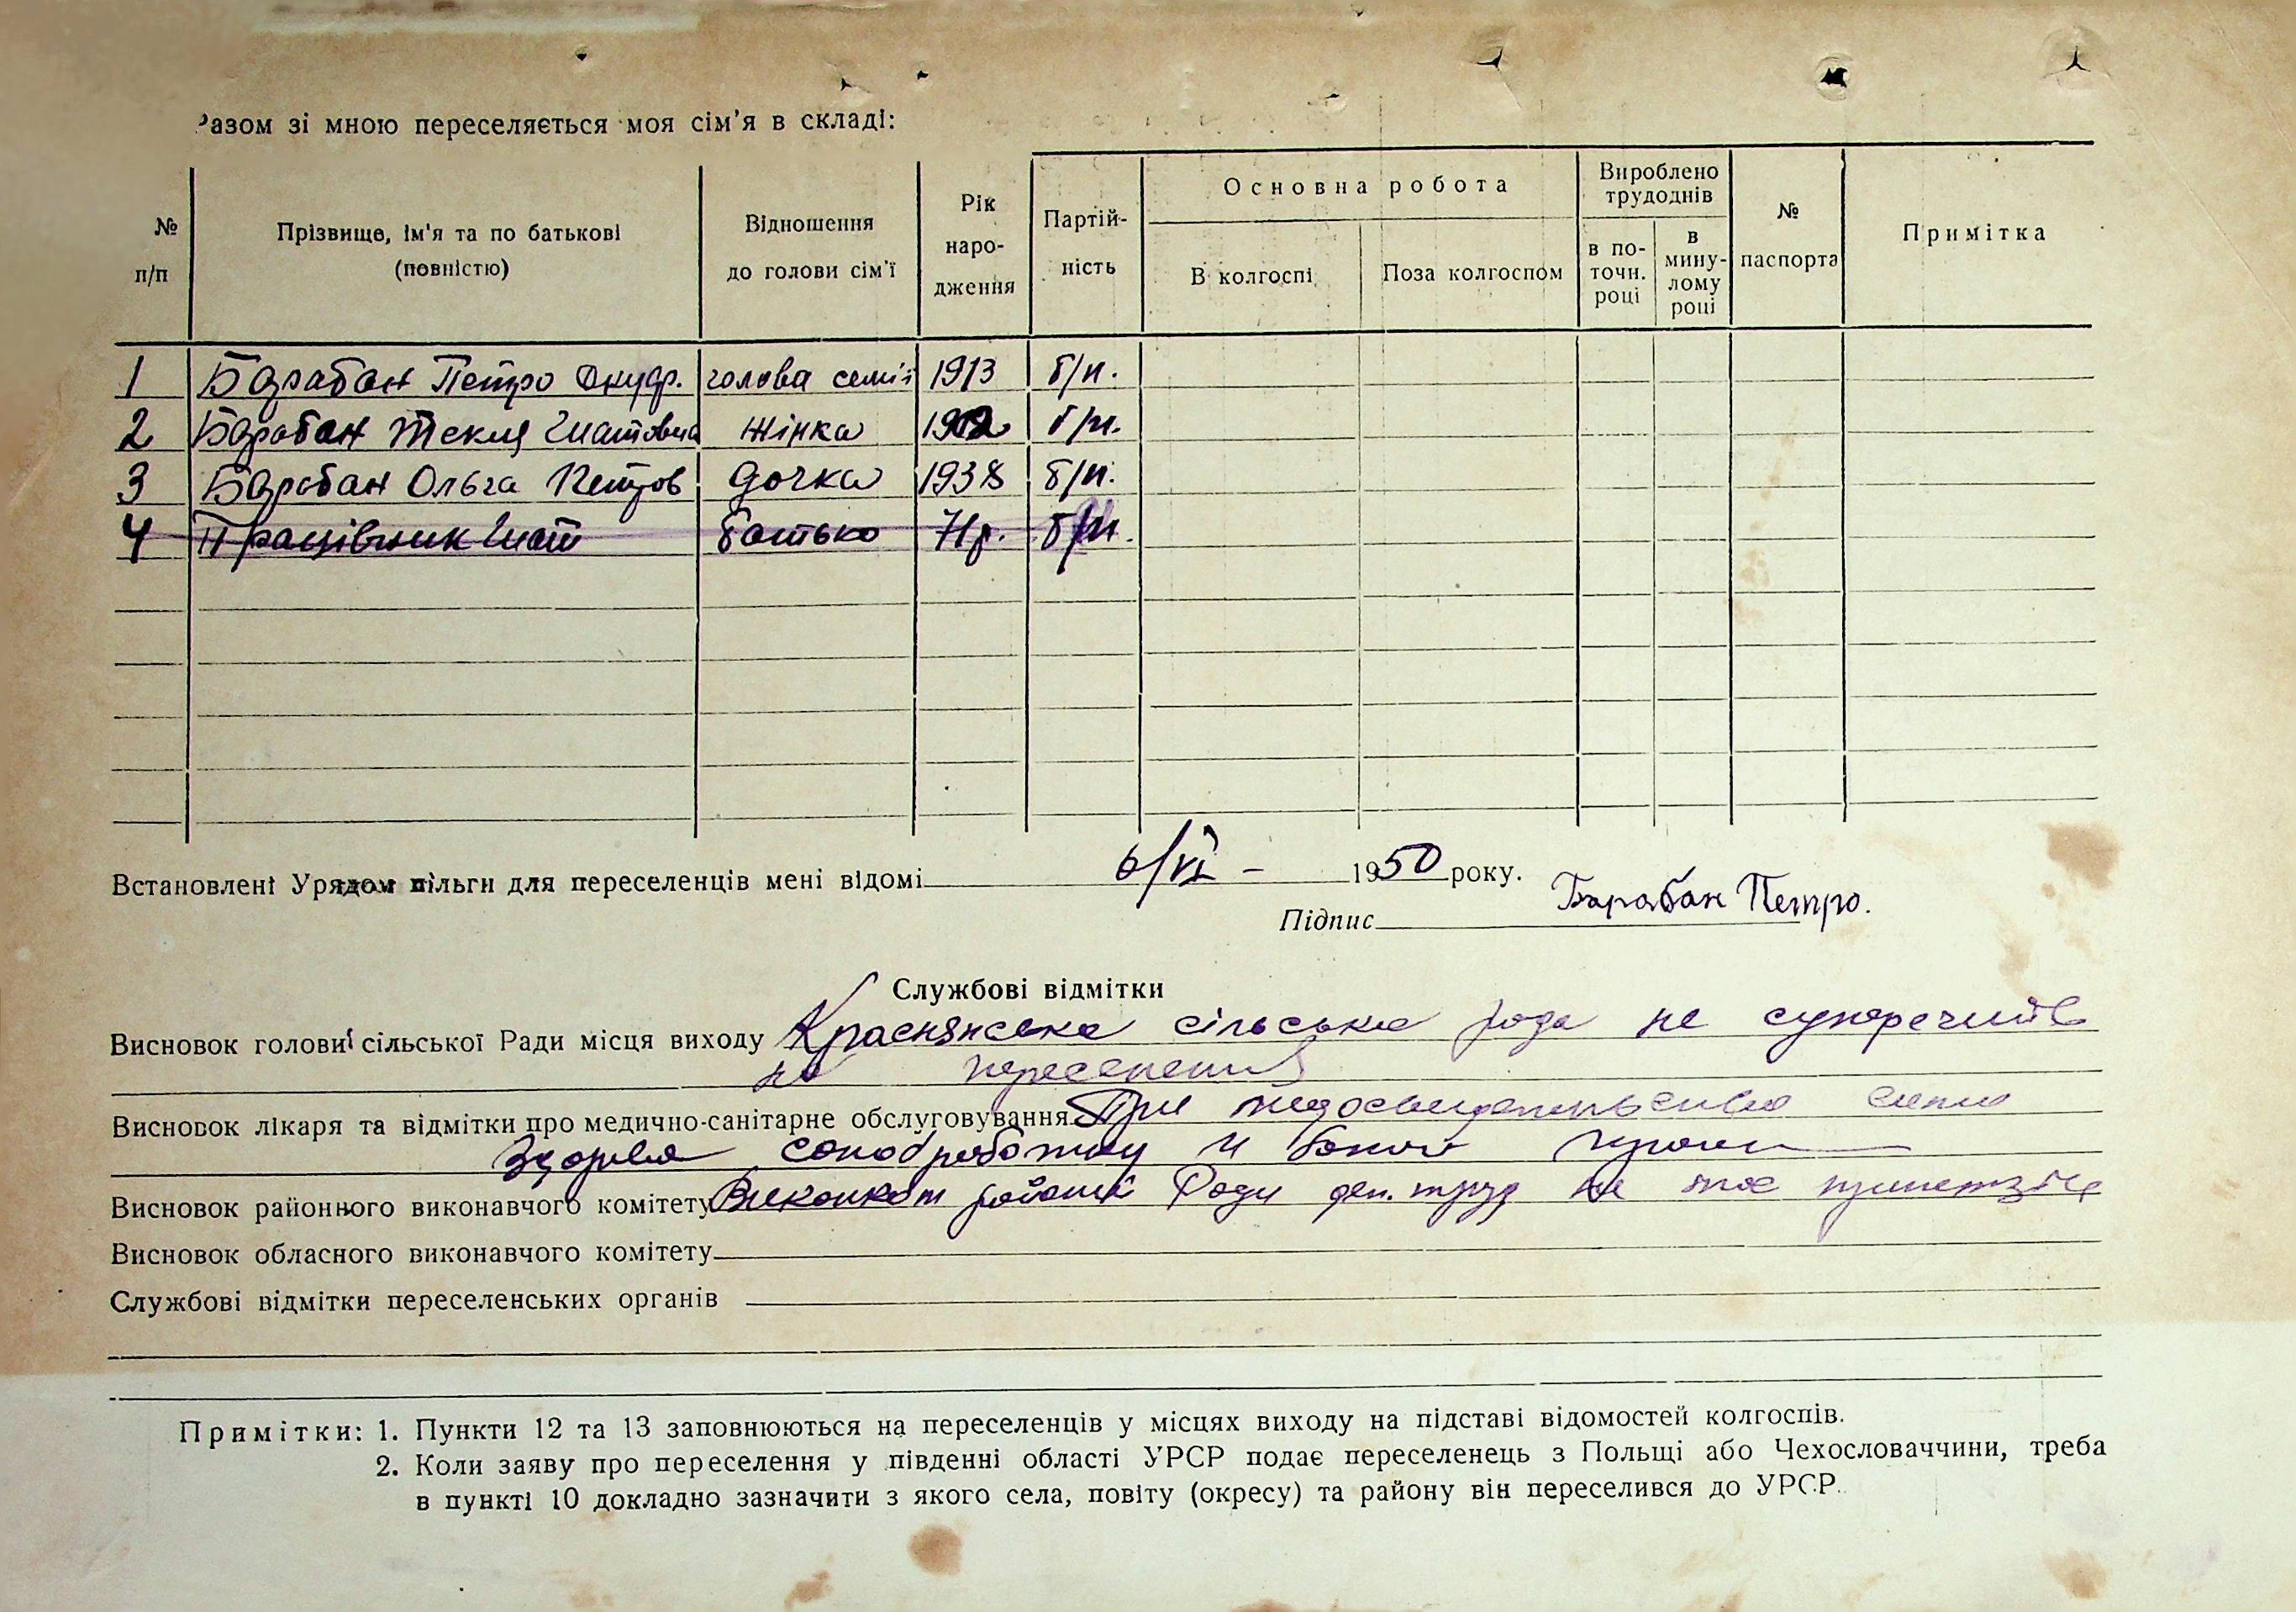 Разом зі мною переселяється моя сім'я в складі:
№ п/п
Прізвище, ім'я та по батькові (повністю)
Відношення до голови сім'ї
Рік народження
Партійність
Основна робота
В колгоспі
Поза колгоспом
Вироблено трудоднів
в поточн. році
в минулому році
№ паспорта
Примітка
1 Барабан Петро Онуфр. голова семії 1913 б/п.
2 Барабан Текля Гнатовна жінка 1912 б/п.
3 Барабан Ольга Петров дочка 1938 б/п.
4 Працівник Гнат батько 71 р. б/п.
Встановлені Урядом пільги для переселенців мені відомі 6/VI - 1950 року.
Підпис Барабан Петро.
Службові відмітки
Висновок голови сільської Ради місця виходу Краснянська сільська рада не супоречить
на переселення
Висновок лікаря та відмітки про медично-санітарне обслуговування При семю
здорова санобработку и
Висновок районного виконавчого комітету Виконком районої Ради деп. труд не має притензіи
Висновок обласного виконавчого комітету
Службові відмітки переселенських органів
Примітки: 1. Пункти 12 та 13 заповнюються на переселенців у місцях виходу на підставі відомостей колгоспів.
2. Коли заяву про переселення у південні області УРСР подає переселенець з Польщі або Чехословаччини, треба
в пункті 10 докладно зазначити з якого села, повіту (окресу) та району він переселився до УРСР.